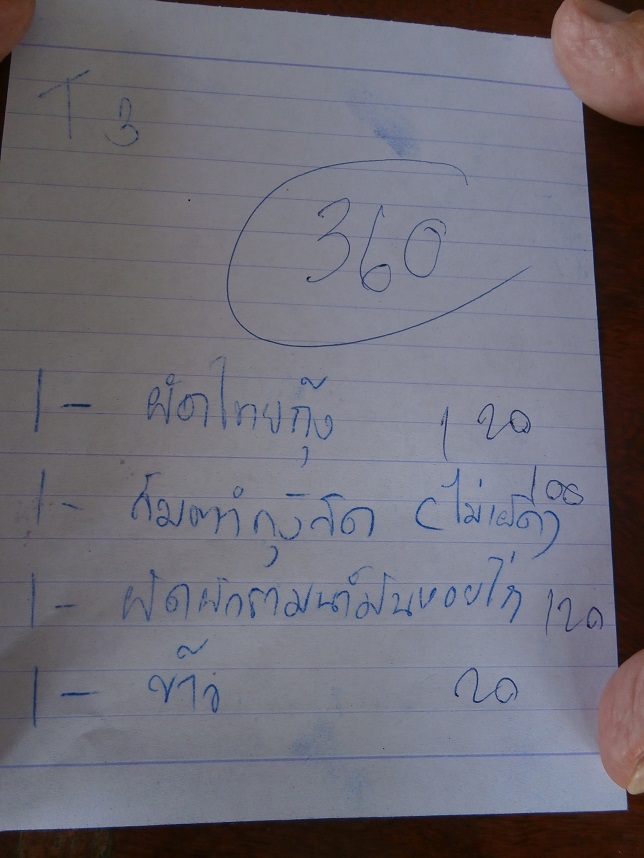 T 3
360
1 - ผัดไทยกุ้ง 120
1 - ส้มตำกุ้งสด (ไม่เผ็ด) 100
1 - ผัดผักรวมน้ำมันหอยไก่ 120
1 - ข้าว 20